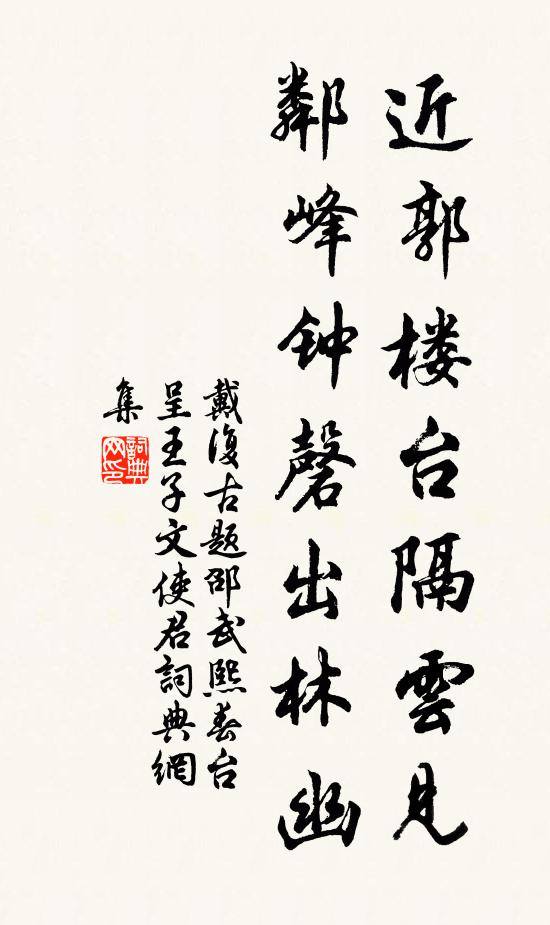 近郭楼台隔雲見
鄰峰钟磬出林幽
戴復古题邵武熙春台
呈王子文使君詞典網
集
詞典
网印